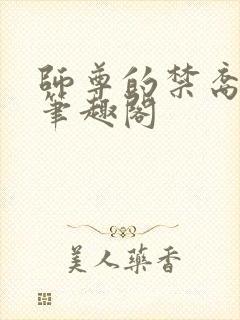 師尊的禁脔
筆趣閣
美人藥香